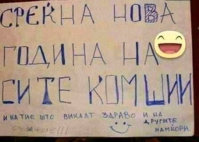 СРЕЌНА НОВА
ГОДИНА НА
СИТЕ КОМШИИ
И НА ТИЕ ШТО ВИКААТ ЗДРАВО И НА
ДРУГИТЕ
НАМЌОРИ.